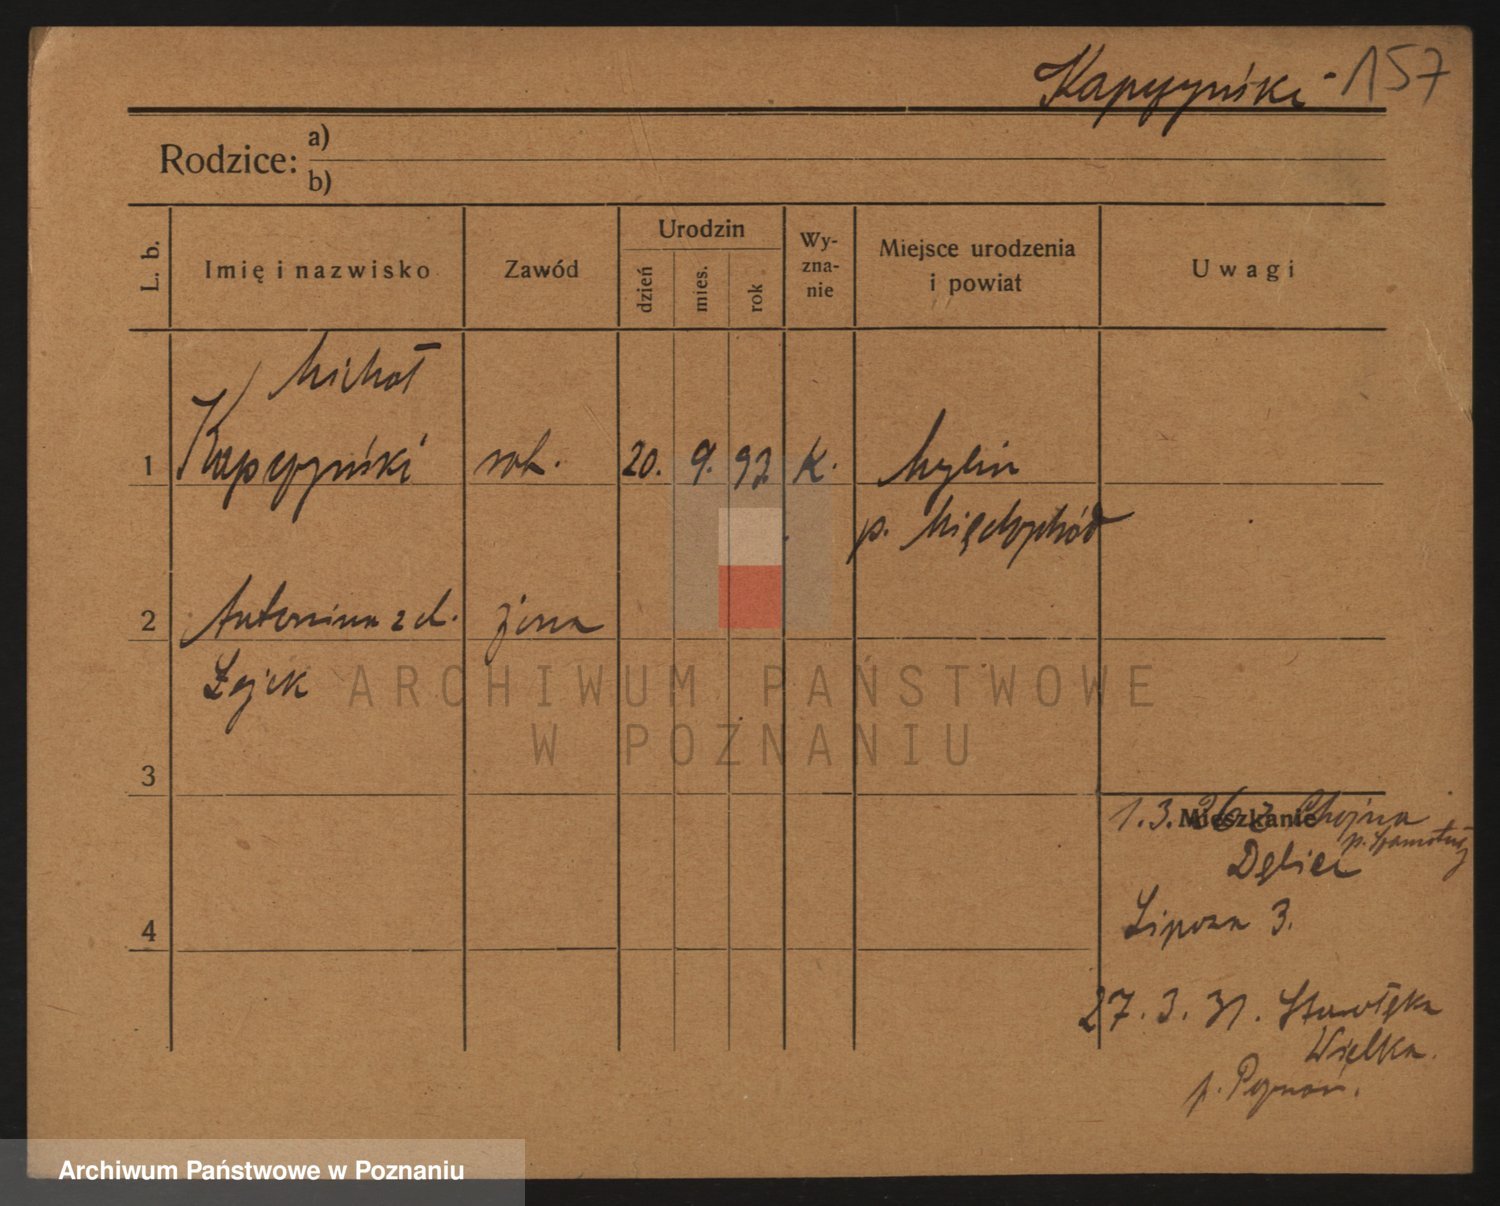 Kapczyński - 157
Rodzice: a)
b)
L. b.
Imię i nazwisko
Zawód
Urodzin
dzień
mies.
rok
Wy-
zna-
nie
Miejsce urodzenia
i powiat
Uwagi
Michał
1 Kapczyński rob. 20. 9. 92 K. Mylin
p. Międzychód
2 Antonina z d. żona
Zając
ARCHIWUM PAŃSTWOWE
W POZNANIU
3
Mieszkanie
1.3. Chojna
p. Szamotuły
Dębiec
4 Lipowa 3.
27. 3. 31. Starołęka
Wielka.
p. Poznań.
Archiwum Państwowe w Poznaniu